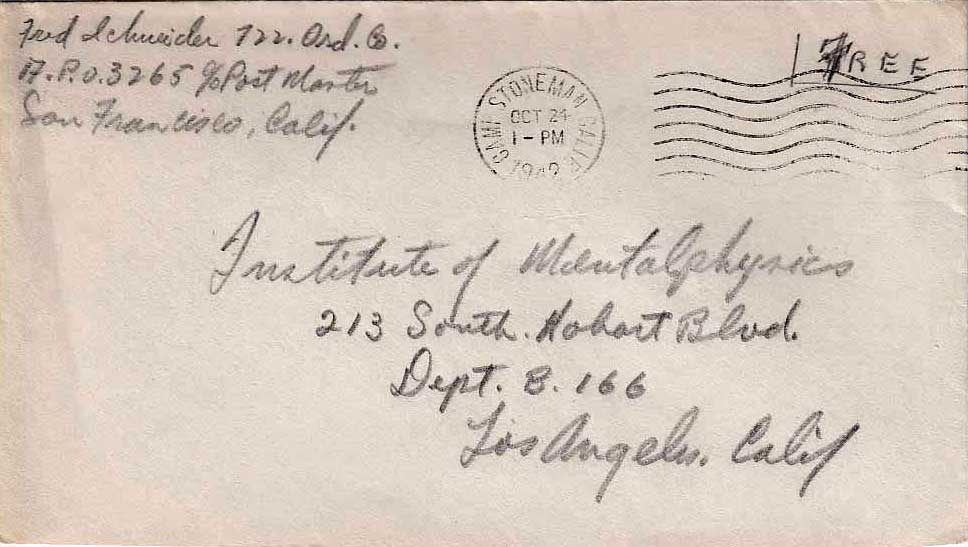 Fred Schneider 722. Ord. Co.
A.P.O. 3265 % Post Master
San Francisco, Calif.
CAMP STONEMAN CALIF.
OCT 24
1 - PM
1942
FREE
Institute of Mentalphysics
213 South. Hobart Blvd.
Dept. B. 166
Los Angeles. Calif